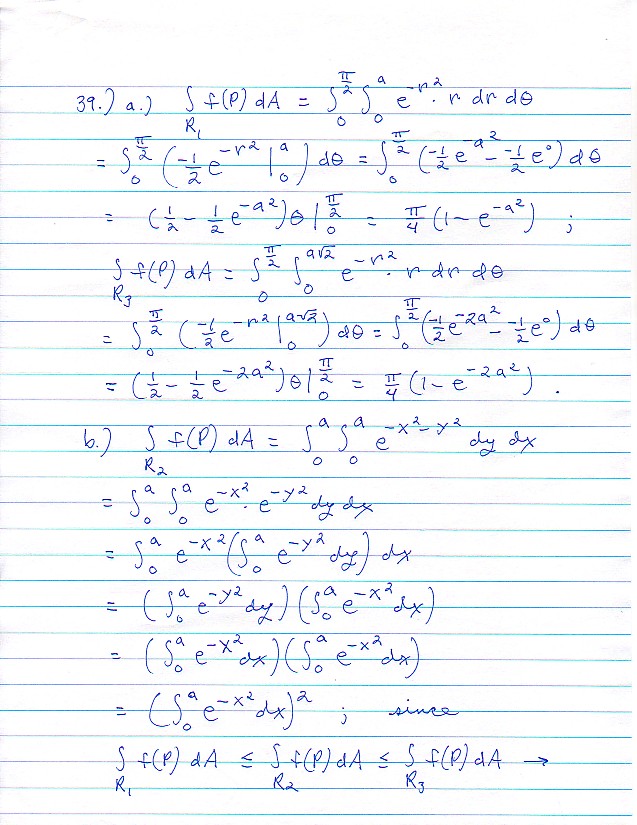 39.) a.) ∫_{R₁} f(P) dA = ∫_0^{π/2} ∫_0^a e^{-r²} · r dr dθ
= ∫_0^{π/2} (-1/2 e^{-r²} |_0^a) dθ = ∫_0^{π/2} (-1/2 e^{-a²} - -1/2 e⁰) dθ
= (1/2 - 1/2 e^{-a²}) θ |_0^{π/2} = π/4 (1 - e^{-a²}) ;
∫_{R₃} f(P) dA = ∫_0^{π/2} ∫_0^{a√2} e^{-r²} · r dr dθ
= ∫_0^{π/2} (-1/2 e^{-r²} |_0^{a√2}) dθ = ∫_0^{π/2} (-1/2 e^{-2a²} - -1/2 e⁰) dθ
= (1/2 - 1/2 e^{-2a²}) θ |_0^{π/2} = π/4 (1 - e^{-2a²}) .
b.) ∫_{R₂} f(P) dA = ∫_0^a ∫_0^a e^{-x²-y²} dy dx
= ∫_0^a ∫_0^a e^{-x²} · e^{-y²} dy dx
= ∫_0^a e^{-x²} (∫_0^a e^{-y²} dy) dx
= (∫_0^a e^{-y²} dy) (∫_0^a e^{-x²} dx)
= (∫_0^a e^{-x²} dx) (∫_0^a e^{-x²} dx)
= (∫_0^a e^{-x²} dx)² ; since
∫_{R₁} f(P) dA ≤ ∫_{R₂} f(P) dA ≤ ∫_{R₃} f(P) dA →